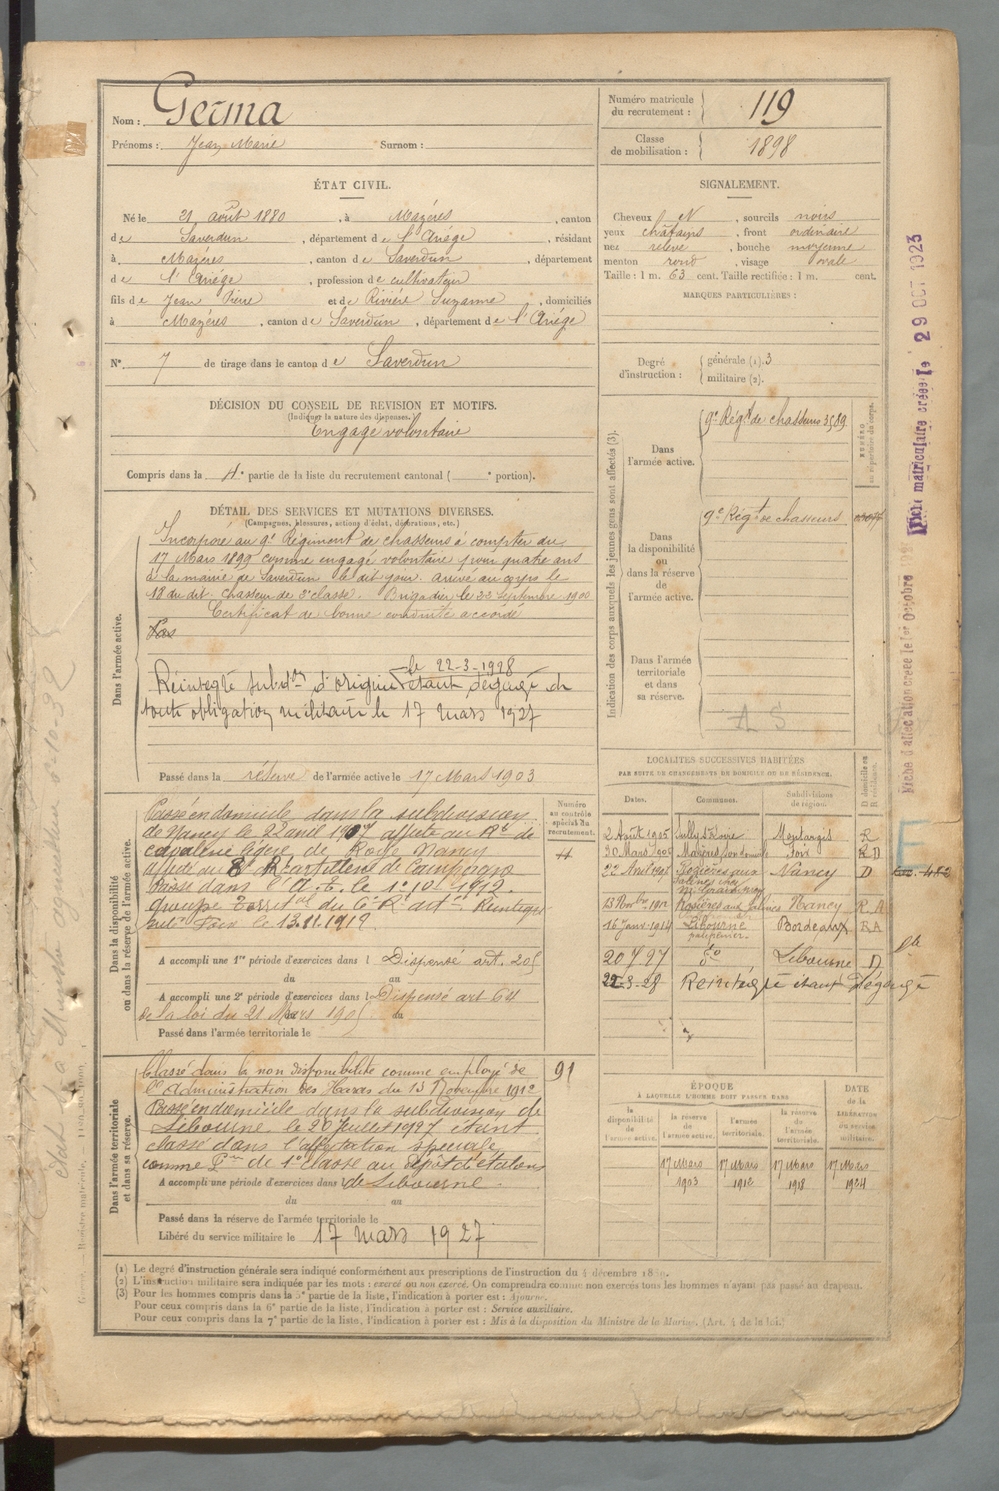 Nom : Germa
Prénoms : Jean Marie Surnom :
Numéro matricule du recrutement : 119
Classe de mobilisation : 1898
ÉTAT CIVIL.
Né le 21 août 1880, à Mazères, canton
de Saverdun, département de l'Ariége, résidant
à Mazères, canton de Saverdun, département
de l'Ariége, profession de cultivateur
fils de Jean Pierre et de Rivière Suzanne, domiciliés
à Mazères, canton de Saverdun, département de l'Ariége
N° 7 de tirage dans le canton de Saverdun
SIGNALEMENT.
Cheveux N, sourcils noirs
yeux châtains, front ordinaire
nez relevé, bouche moyenne
menton rond, visage ovale
Taille : 1 m. 63 cent. Taille rectifiée : 1 m. cent.
MARQUES PARTICULIÈRES :
Degré d'instruction : générale (1). 3
militaire (2).
DÉCISION DU CONSEIL DE REVISION ET MOTIFS.
(Indiquer la nature des dispenses.)
Engagé volontaire
Compris dans la 4e partie de la liste du recrutement cantonal ( e portion).
DÉTAIL DES SERVICES ET MUTATIONS DIVERSES.
(Campagnes, blessures, actions d'éclat, décorations, etc.)
Dans l'armée active.
Incorporé au 9e Régiment de chasseurs à compter du
17 Mars 1899 comme engagé volontaire pour quatre ans
à la mairie de Saverdun le dit jour. arrivé au corps le
18 du dit. Chasseur de 2e classe. Brigadier le 22 Septembre 1900
Certificat de bonne conduite accordé
Pas
le 22-3-1928
Réintégré subdon d'origine étant dégagé de
toute obligation militaire le 17 mars 1927
Passé dans la réserve de l'armée active le 17 Mars 1903
Indication des corps auxquels les jeunes gens sont affectés (3).
Dans l'armée active. 9e Régt de chasseurs 3589
NUMÉRO au répertoire du corps.
Dans la disponibilité ou dans la réserve de l'armée active. 9e Régt de chasseurs
Dans l'armée territoriale et dans sa réserve.
A S
Dans la disponibilité ou dans la réserve de l'armée active.
Passé en domicile dans la subdivision
de Nancy le 22 avril 1907 affecté au Rt de
cavalerie légère de Nancy
affecté au 8 R artillerie de Campagne
Passé dans l'A.T. le 1er 10 1912.
groupe Territal du 6e R art ie Réintégré
le 13.11.1912.
Numéro au contrôle spécial du recrutement.
A accompli une 1re période d'exercices dans l Dispensé art. 205
du au
A accompli une 2e période d'exercices dans l Dispensé art 64
de la loi du 21 Mars 1905 du
Passé dans l'armée territoriale le
LOCALITÉS SUCCESSIVES HABITÉES
PAR SUITE DE CHANGEMENTS DE DOMICILE OU DE RÉSIDENCE.
Dates. Communes. Subdivisions de région. D domicile ou R résidence.
2 Août 1905 Sully s Loire Montargis R
30 Mars 1906 Mazères Foix R D
22 Avril 1907 Rozières aux Salines Nancy D
13 Novbre 1912 Rosières aux Salines Nancy R A
16 Janv. 1914 Libourne Bordeaux R A
palefrenier
20 7 27 do Libourne D
22-3-28 Réintégré étant Dégagé
Dans l'armée territoriale et dans sa réserve.
Classé dans la non disponibilité comme employé de
l'Administration des Haras du 13 Novembre 1912
Passé en domicile dans la subdivision de
Libourne le 20 juillet 1927 étant
classé dans l'affectation spéciale
comme Per de 1e classe au dépôt d'étalons
91
A accompli une période d'exercices dans de Libourne.
du au
Passé dans la réserve de l'armée territoriale le
Libéré du service militaire le 17 mars 1927
ÉPOQUE
À LAQUELLE L'HOMME DOIT PASSER DANS
DATE de la LIBÉRATION du service militaire.
la disponibilité de l'armée active. la réserve de l'armée active. l'armée territoriale. la réserve de l'armée territoriale.
17 Mars 1903 17 Mars 1912 17 Mars 1918 17 Mars 1924
(1) Le degré d'instruction générale sera indiqué conformément aux prescriptions de l'instruction du 4 décembre 1889.
(2) L'instruction militaire sera indiquée par les mots : exercé ou non exercé. On comprendra comme non exercés tous les hommes n'ayant pas passé au drapeau.
(3) Pour les hommes compris dans la 5e partie de la liste, l'indication à porter est : Ajourné.
Pour ceux compris dans la 6e partie de la liste, l'indication à porter est : Service auxiliaire.
Pour ceux compris dans la 7e partie de la liste, l'indication à porter est : Mis à la disposition du Ministre de la Marine. (Art. 4 de la loi.)
Fiche matriculaire créée le 29 OCT 1923
Fiche d'affectation créée le 1er Octobre
E